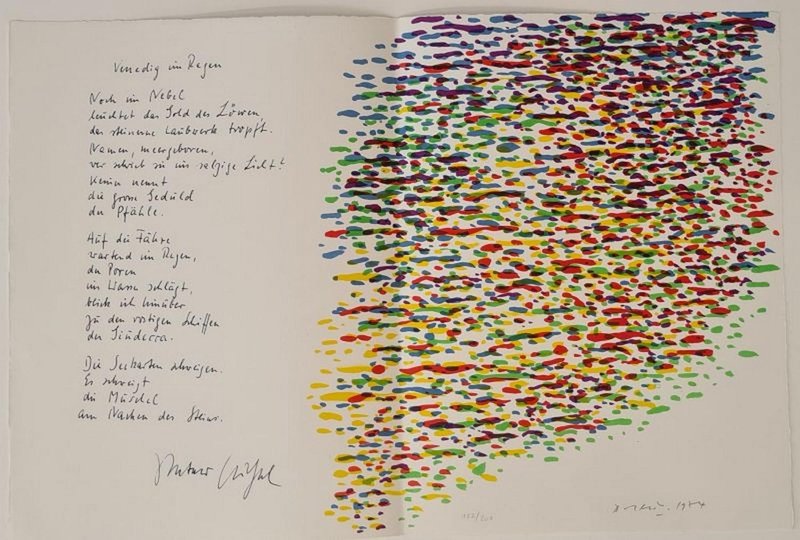 Venedig im Regen
Noch im Nebel
leuchtet das Gold des Löwen,
das steinerne Laubwerk tropft.
Namen, meergeboren,
wer schrieb sie ins salzige Licht?
Keiner nennt
die grosse Geduld
der Pfähle.
Auf die Fähre
wartend im Regen,
der Poren
ins Wasser schlägt,
blick ich hinüber
zu den rostigen Schiffen
der Giudecca.
Die Seekarten schweigen.
Es schweigt
die Muschel
am Nacken des Steins.